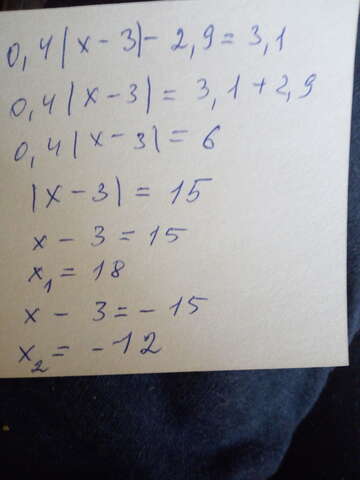 0,4|x-3|-2,9=3,1
0,4|x-3|=3,1+2,9
0,4|x-3|=6
|x-3|=15
x-3=15
x₁=18
x-3=-15
x₂=-12